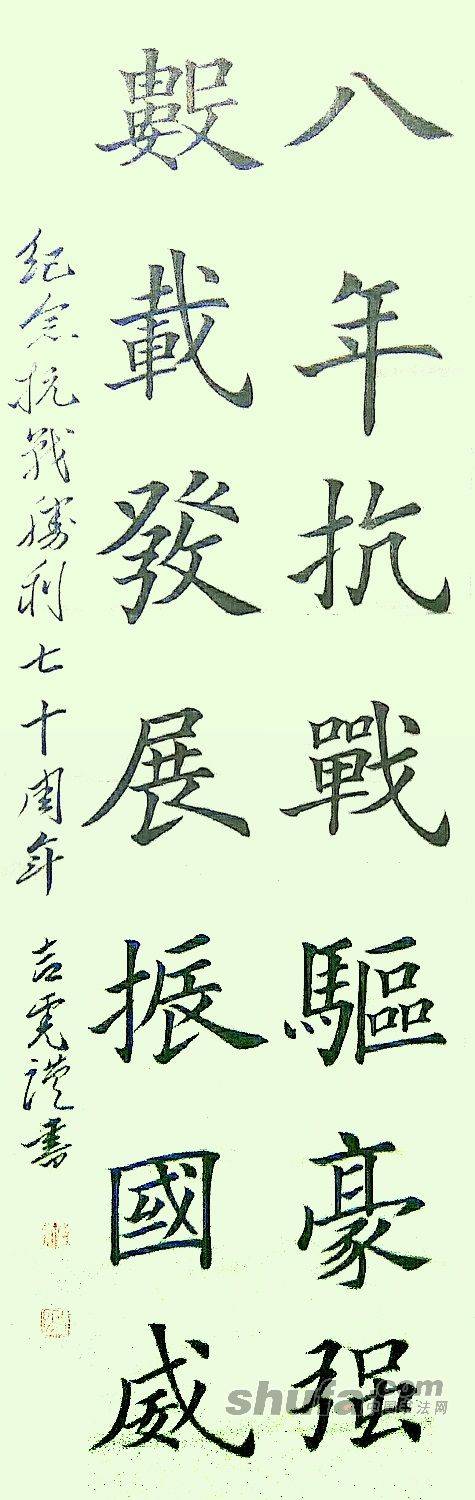 八年抗戰驅豪强
數載發展振國威
紀念抗戰勝利七十周年 吉謹書
shufa.com
中国书法网